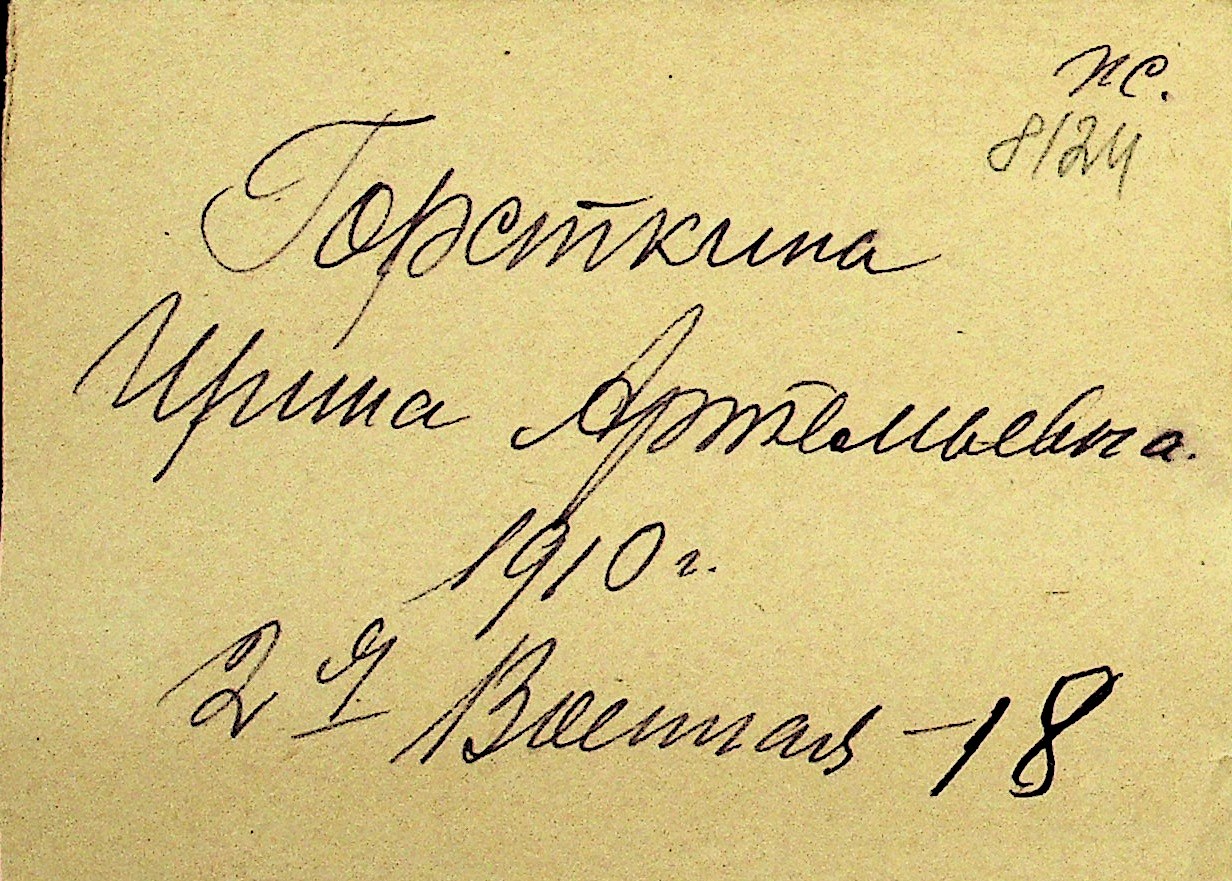 пс.
8124
Горсткина
Ирина Артемьевна.
1910 г.
2 я Военная - 18